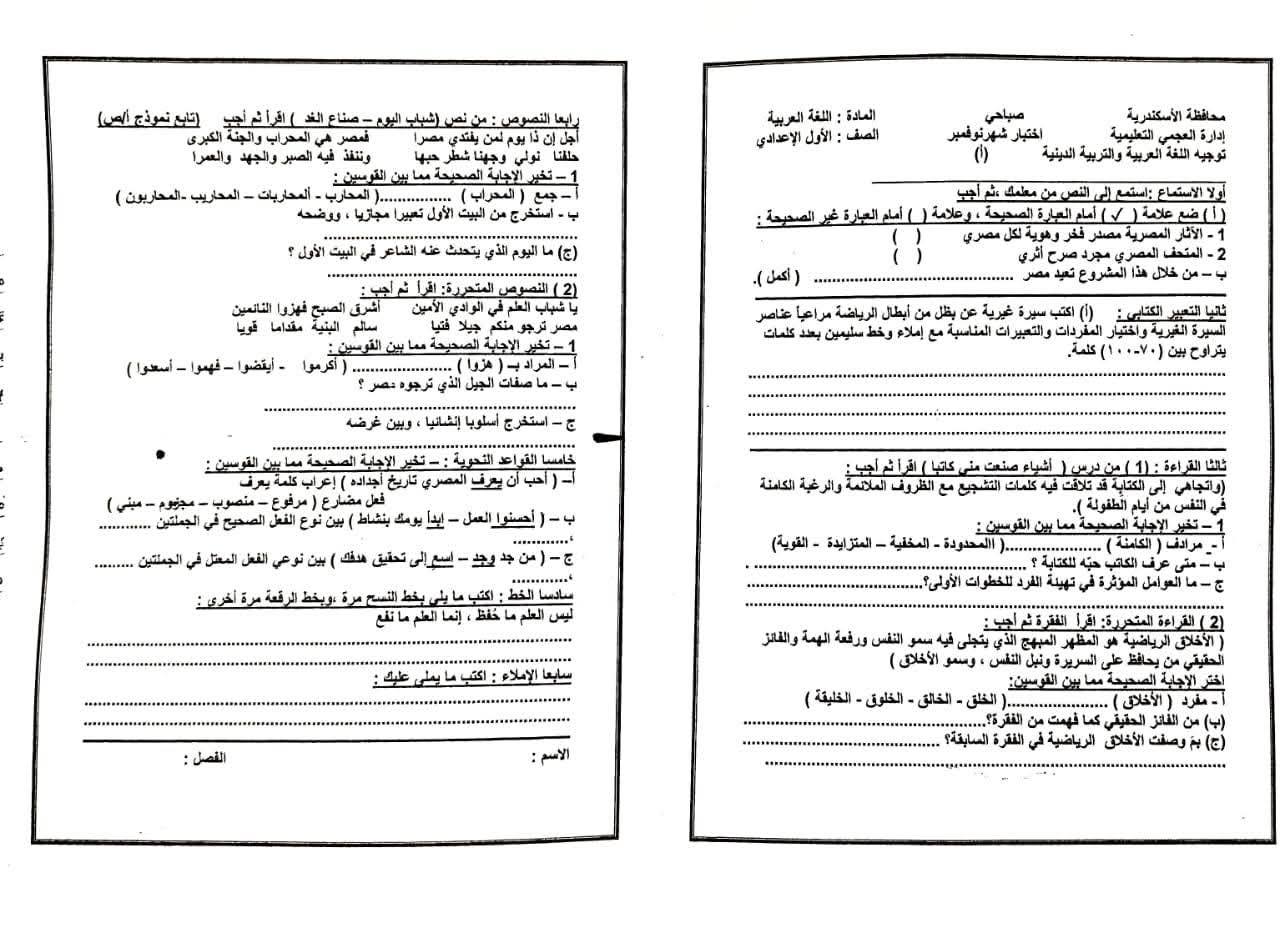 محافظة الأسكندرية صباحي المادة : اللغة العربية
إدارة العجمي التعليمية اختبار شهرنوفمبر الصف : الأول الإعدادي
توجيه اللغة العربية والتربية الدينية (أ)
أولا الاستماع :استمع إلى النص من معلمك ،ثم أجب
( أ ) ضع علامة ( ✓ ) أمام العبارة الصحيحة ، وعلامة ( ) أمام العبارة غير الصحيحة :
1 - الآثار المصرية مصدر فخر وهوية لكل مصري ( )
2 - المتحف المصري مجرد صرح أثري ( )
ب – من خلال هذا المشروع تعيد مصر .................................................. ( أكمل ).
ثانيا التعبير الكتابي : (أ) اكتب سيرة غيرية عن بطل من أبطال الرياضة مراعياً عناصر
السيرة الغيرية واختيار المفردات والتعبيرات المناسبة مع إملاء وخط سليمين بعدد كلمات
يتراوح بين (٧٠-١٠٠) كلمة.
................................................................................
................................................................................
................................................................................
................................................................................
ثالثا القراءة : (1 ) من درس ( أشياء صنعت مني كاتبا ) اقرأ ثم أجب :
(واتجاهي إلى الكتابة قد تلاقت فيه كلمات التشجيع مع الظروف الملائمة والرغبة الكامنة
في النفس من أيام الطفولة ).
1 – تخير الإجابة الصحيحة مما بين القوسين :
أ - مرادف ( الكامنة ) ........................( االمحدودة - المخفية – المتزايدة - القوية)
ب – متى عرف الكاتب حبّه للكتابة ؟ .................................................. .
ج – ما العوامل المؤثرة في تهيئة الفرد للخطوات الأولى؟..................................
................................................................................
(2 ) القراءة المتحررة: اقرأ الفقرة ثم أجب :
( الأخلاق الرياضية هو المظهر المبهج الذي يتجلى فيه سمو النفس ورفعة الهمة والفائز
الحقيقي من يحافظ على السريرة ونبل النفس ، وسمو الأخلاق )
اختر الإجابة الصحيحة مما بين القوسين:
أ - مفرد ( الأخلاق ) ........................( الخلق - الخالق - الخلوق - الخليقة )
(ب) من الفائز الحقيقي كما فهمت من الفقرة؟..................................................
(ج) بمَ وصفت الأخلاق الرياضية في الفقرة السابقة؟ ........................................
................................................................................
رابعا النصوص : من نص (شباب اليوم – صناع الغد ) اقرأ ثم أجب (تابع نموذج أ/ص)
أجل إن ذا يوم لمن يفتدي مصرا فمصر هي المحراب والجنة الكبرى
حلفنا نولي وجهنا شطر حبها وننفذ فيه الصبر والجهد والعمرا
1 – تخير الإجابة الصحيحة مما بين القوسين :
أ – جمع ( المحراب ) ................( المحارب - ألمحاربات – المحاريب -المحاربون )
ب - استخرج من البيت الأول تعبيرا مجازيا ، ووضحه
............................................................
(ج) ما اليوم الذي يتحدث عنه الشاعر في البيت الأول ؟
............................................................
(2 ) النصوص المتحررة: اقرأ ثم أجب :
يا شباب العلم في الوادي الأمين أشرق الصبح فهزوا النائمين
مصر ترجو منكم جيلا فتيا سالم البنية مقداما قويا
1 – تخير الإجابة الصحيحة مما بين القوسين :
أ – المراد بـ ( هزوا ) ........................ ( أكرموا - أيقضوا – فهموا – أسعدوا )
ب – ما صفات الجيل الذي ترجوه مصر ؟
............................................................
ج – استخرج أسلوبا إنشائيا ، وبين غرضه
............................................................
خامسا القواعد النحوية : – تخير الإجابة الصحيحة مما بين القوسين :
أ– ( أحب أن يعرف المصري تاريخ أجداده ) إعراب كلمة يعرف
فعل مضارع ( مرفوع – منصوب – مجزوم – مبني )
ب – ( أحسنوا العمل – إبدأ يومك بنشاط ) بين نوع الفعل الصحيح في الجملتين ............
،............
ج – ( من جد وجد – اسع إلى تحقيق هدفك ) بين نوعي الفعل المعتل في الجملتين .........
،............
سادسا الخط : اكتب ما يلي بخط النسخ مرة ،وبخط الرقعة مرة أخرى :
ليس العلم ما حُفظ ، إنما العلم ما نفع
................................................................................
................................................................................
سابعا الإملاء : اكتب ما يملى عليك :
................................................................................
................................................................................
الاسم : الفصل :